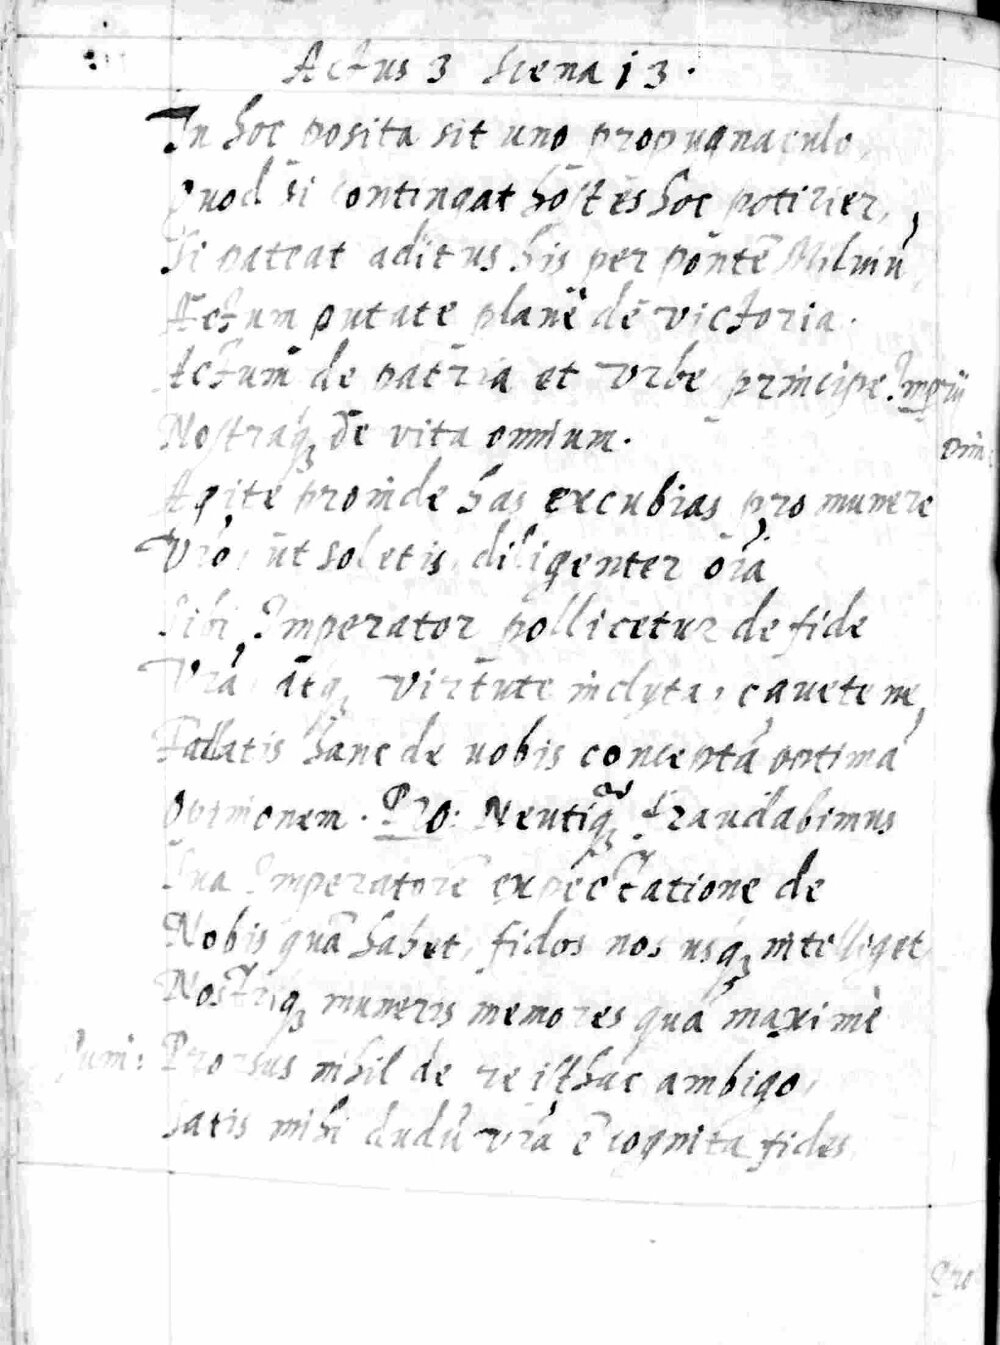 Actus 3 Scena 13.
In hoc posita sit uno propugnaculo,
Quod si contingat hostes hoc potirier,
Si pateat aditus his per pontē Milviũ,
Actum putate planè de victoria.
Actum de patria et vrbe principe Imperij
Nostraq́ꝫ de vita omnium.
Agite proinde has excubias pro munere
Vr̃o, ut soletis, diligenter oĩa
Sibi Imperator pollicetur de fide
Vr̃a, atq́ꝫ virtute inclyta, cavete ne
Fallatis hanc de uobis conceptã optimã
Opinionem. Pro: Neutiq̃ꝫ fraudabimus
Sua Imperatorē expectatione de
Nobis quã habet, fidos nos usq́ꝫ intelliget,
Nostriq́ꝫ muneris memores quã maximè
Iuni: Prorsus nihil de re isthac ambigo,
Satis mihi dudũ vr̃a ē cognita fides,
Pro